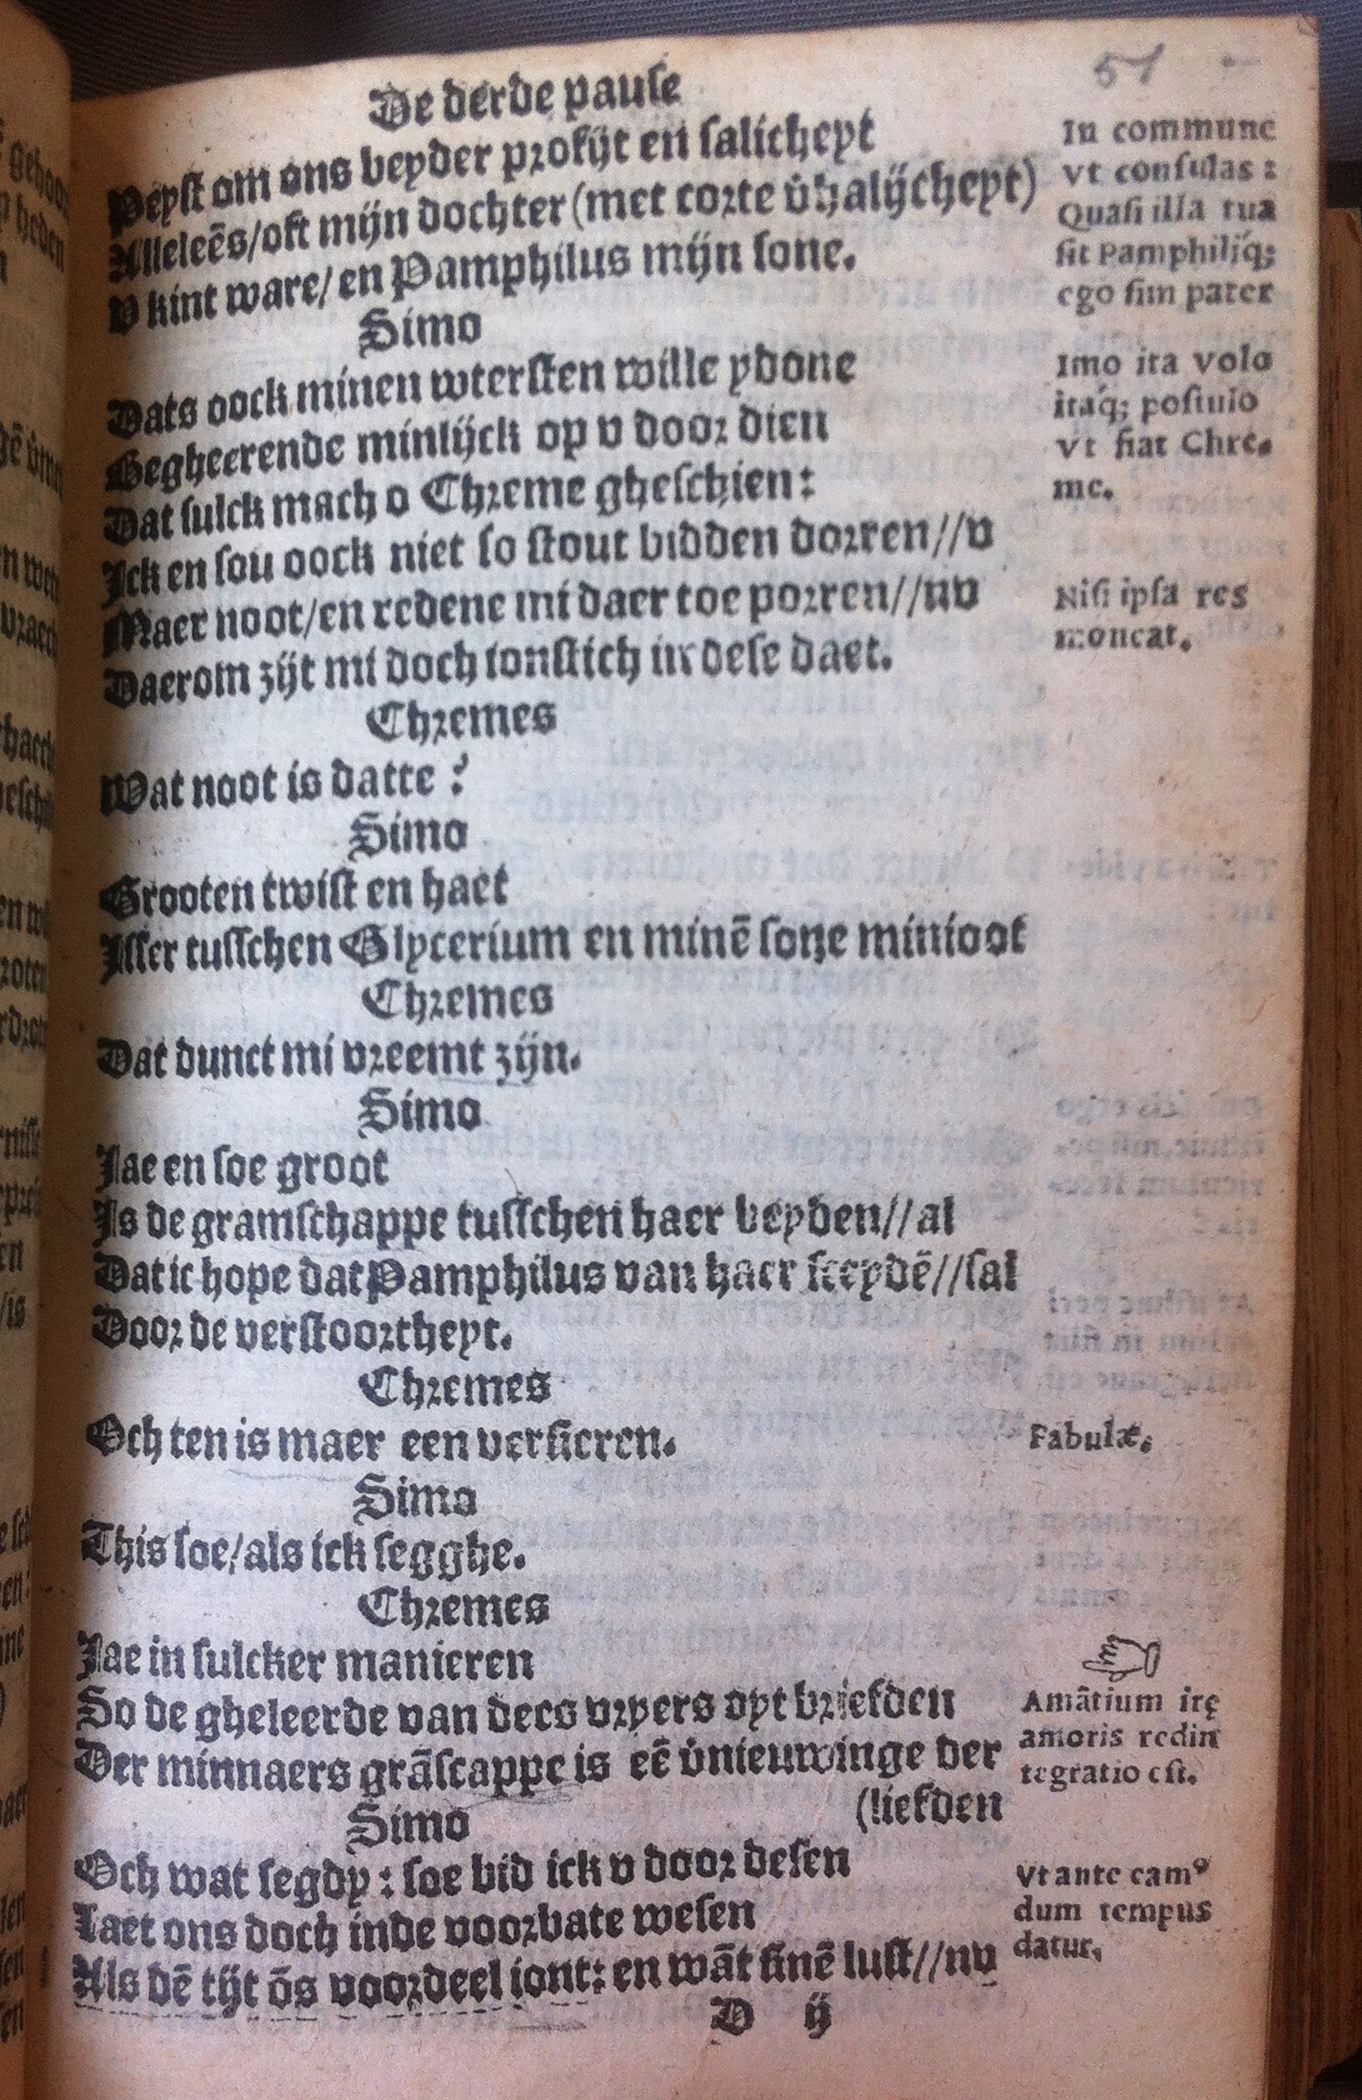 51
De derde pause
Peyst om ons beyder profijt en salicheyt
Alleleēs/oft mijn dochter (met corte v̓halijcheyt)
V kint ware/ en Pamphilus mijn sone.
Simo
Dats oock minen wtersten wille ydone
Begheerende minlijck op v door dien
Dat sulck mach o Chreme gheschien:
Ick en sou oock niet so stout bidden dorren//v
Maer noot/en redene mi daer toe porren//nv
Daerom zijt mi doch ionstich in dese daet.
Chremes
Wat noot is datte?
Simo
Grooten twist en haet
Isser tusschen Glycerium en minē sone minioot
Chremes
Dat dunct mi vreemt zijn.
Simo
Jae en soe groot
Is de gramschappe tusschen haer beyden//al
Dat ic hope dat Pamphilus van haer sceydē//sal
Door de verstoortheyt.
Chremes
Och ten is maer een versieren.
Simo
This soe/als ick segghe.
Chremes
Jae in sulcker manieren
So de gheleerde van decs vryers opt briefden
Der minnaers grāscappe is eē v̓nieuwinge der
(liefden
Simo
Och wat segdy: soe bid ick v door desen
Laet ons doch inde voorbate wesen
Als dē tijt ōs voordeel iont: en wāt sinē lust//nv
D ij
In commune
vt consulas:
Quasi illa tua
sit Pamphiliq́;
ego sim pater
Imo ita volo
itaq́; postulo
vt fiat Chre-
me.
Nisi ipsa res
moneat.
Fabulæ.
Amātium irę
amoris redin
tegratio est.
Vt ante eamꝰ
dum tempus
datur,